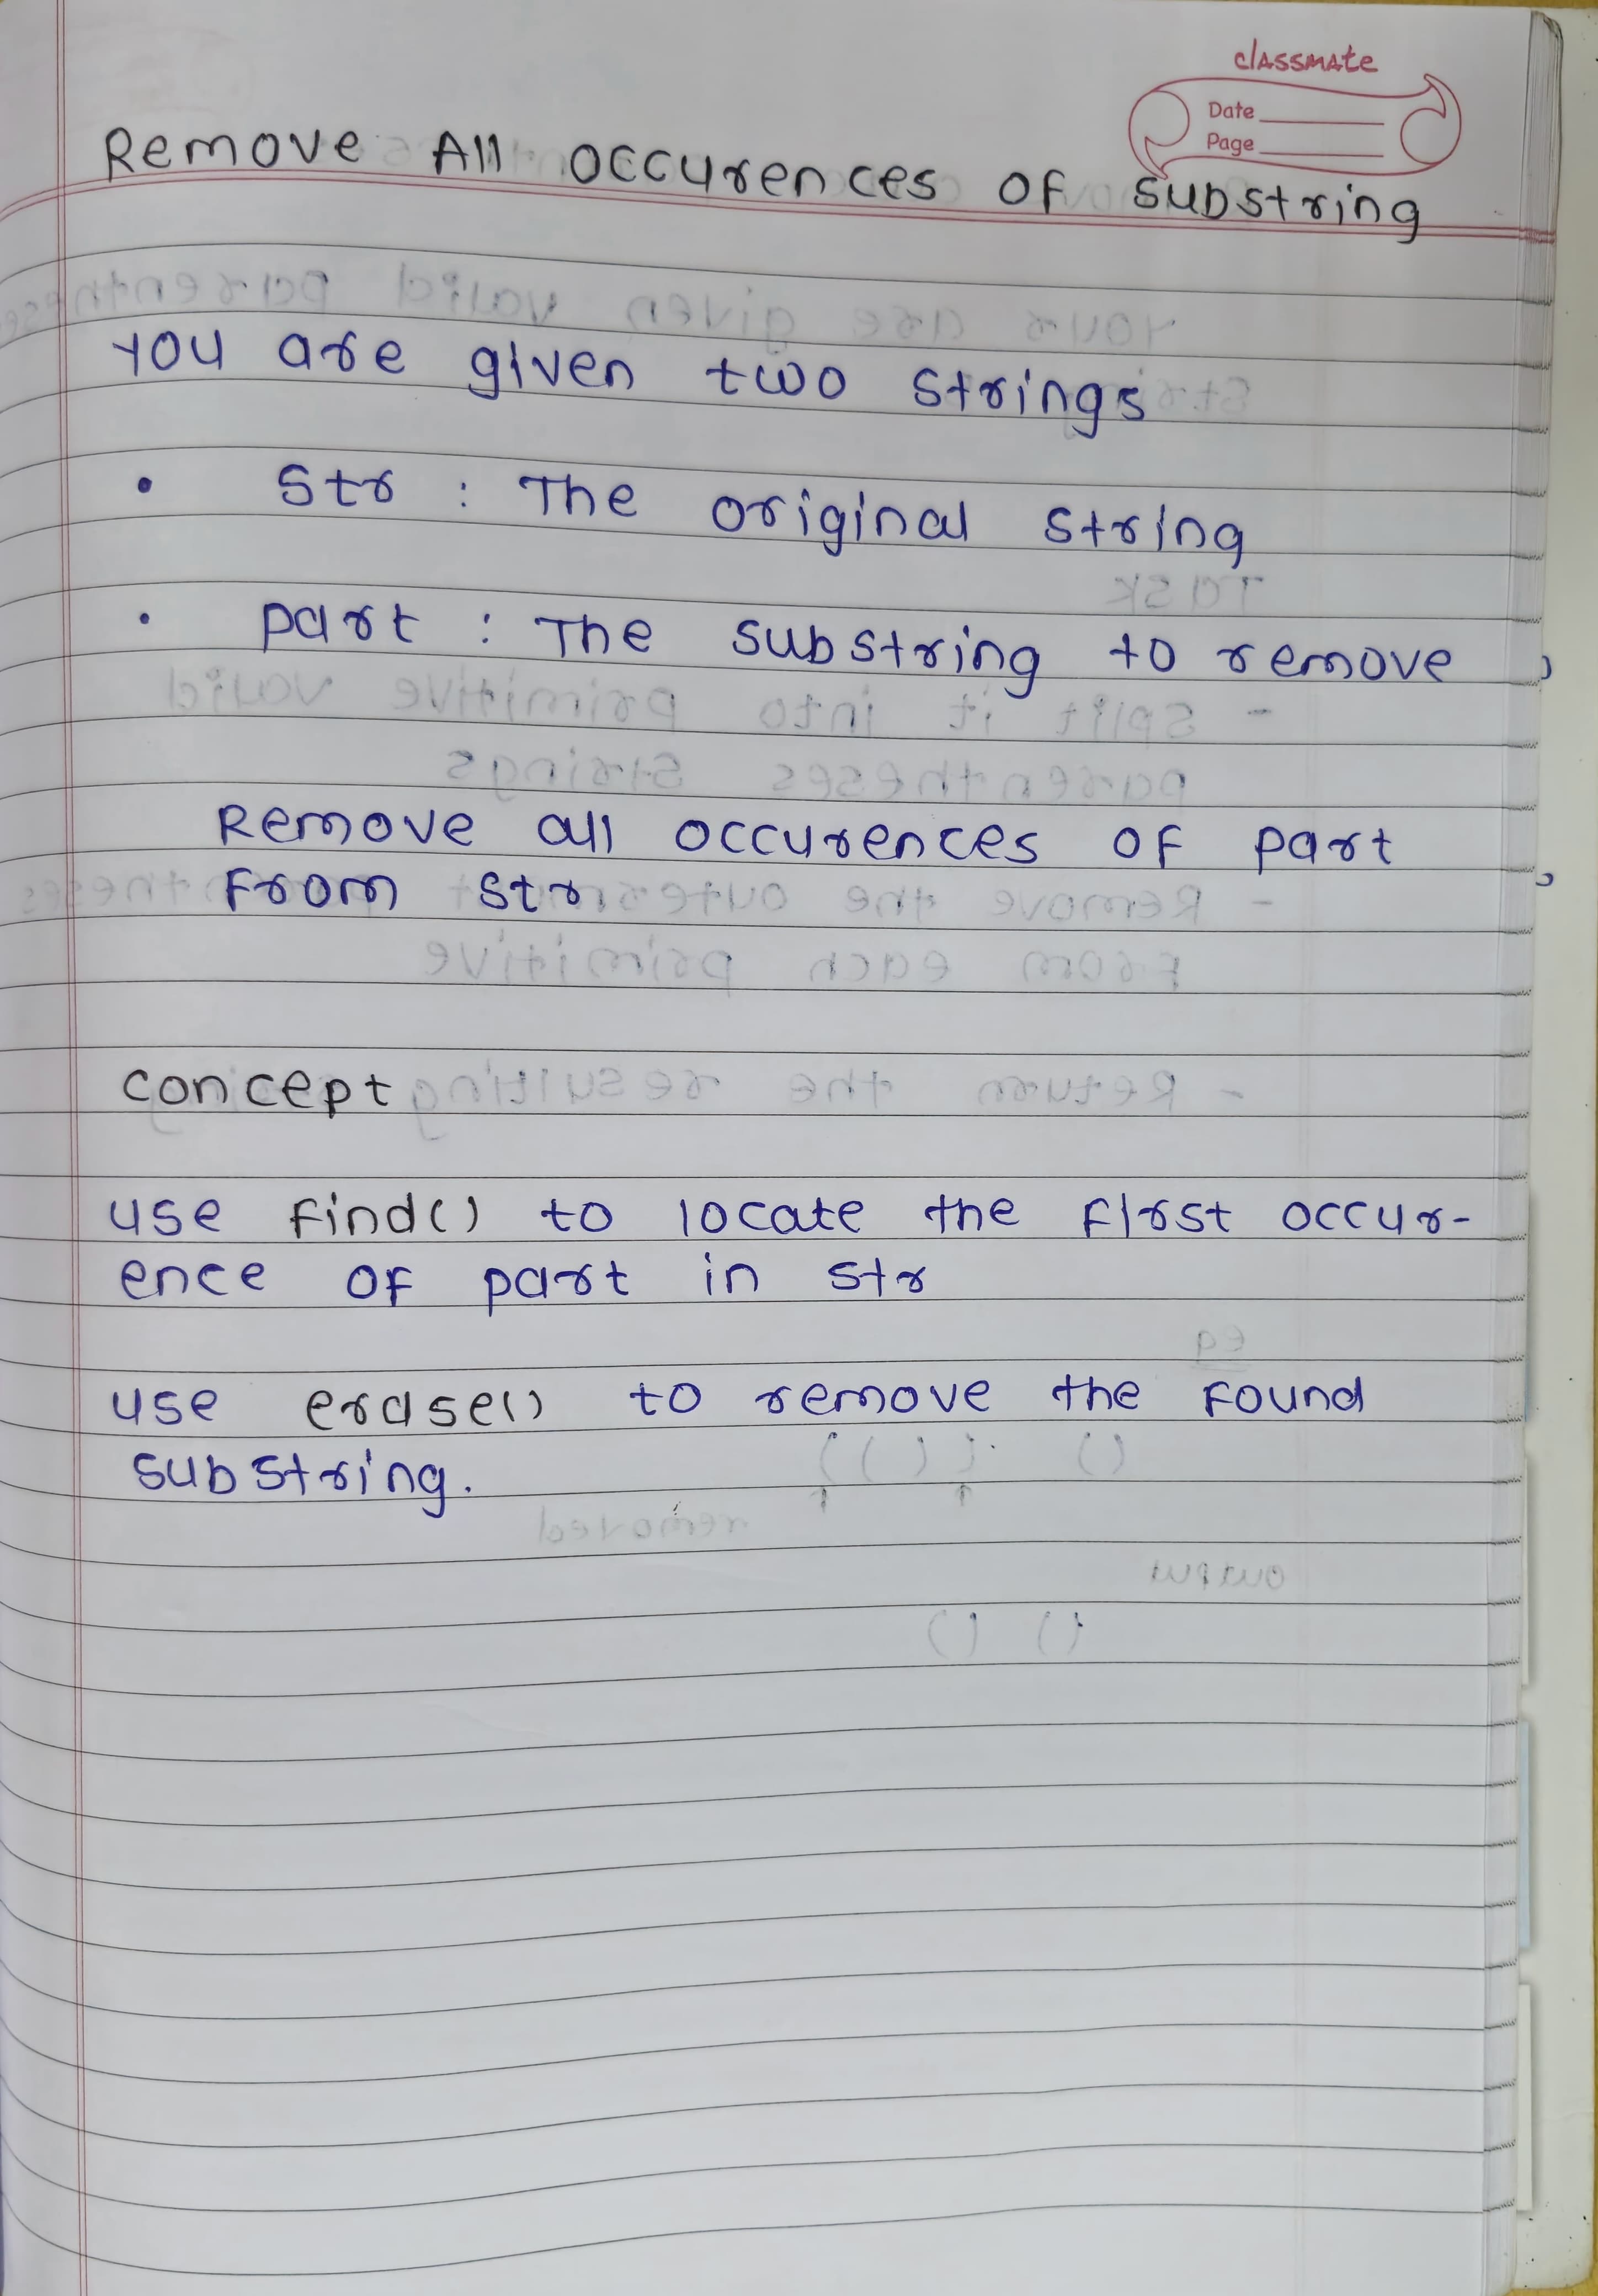 classmate
Date
Page
Remove All occurences of substring
You are given two strings
• Str : The original string
• part : The substring to remove
Remove all occurences of part
from str
concept
use find() to locate the first occur-
ence of part in str
use erase() to remove the found
substring.